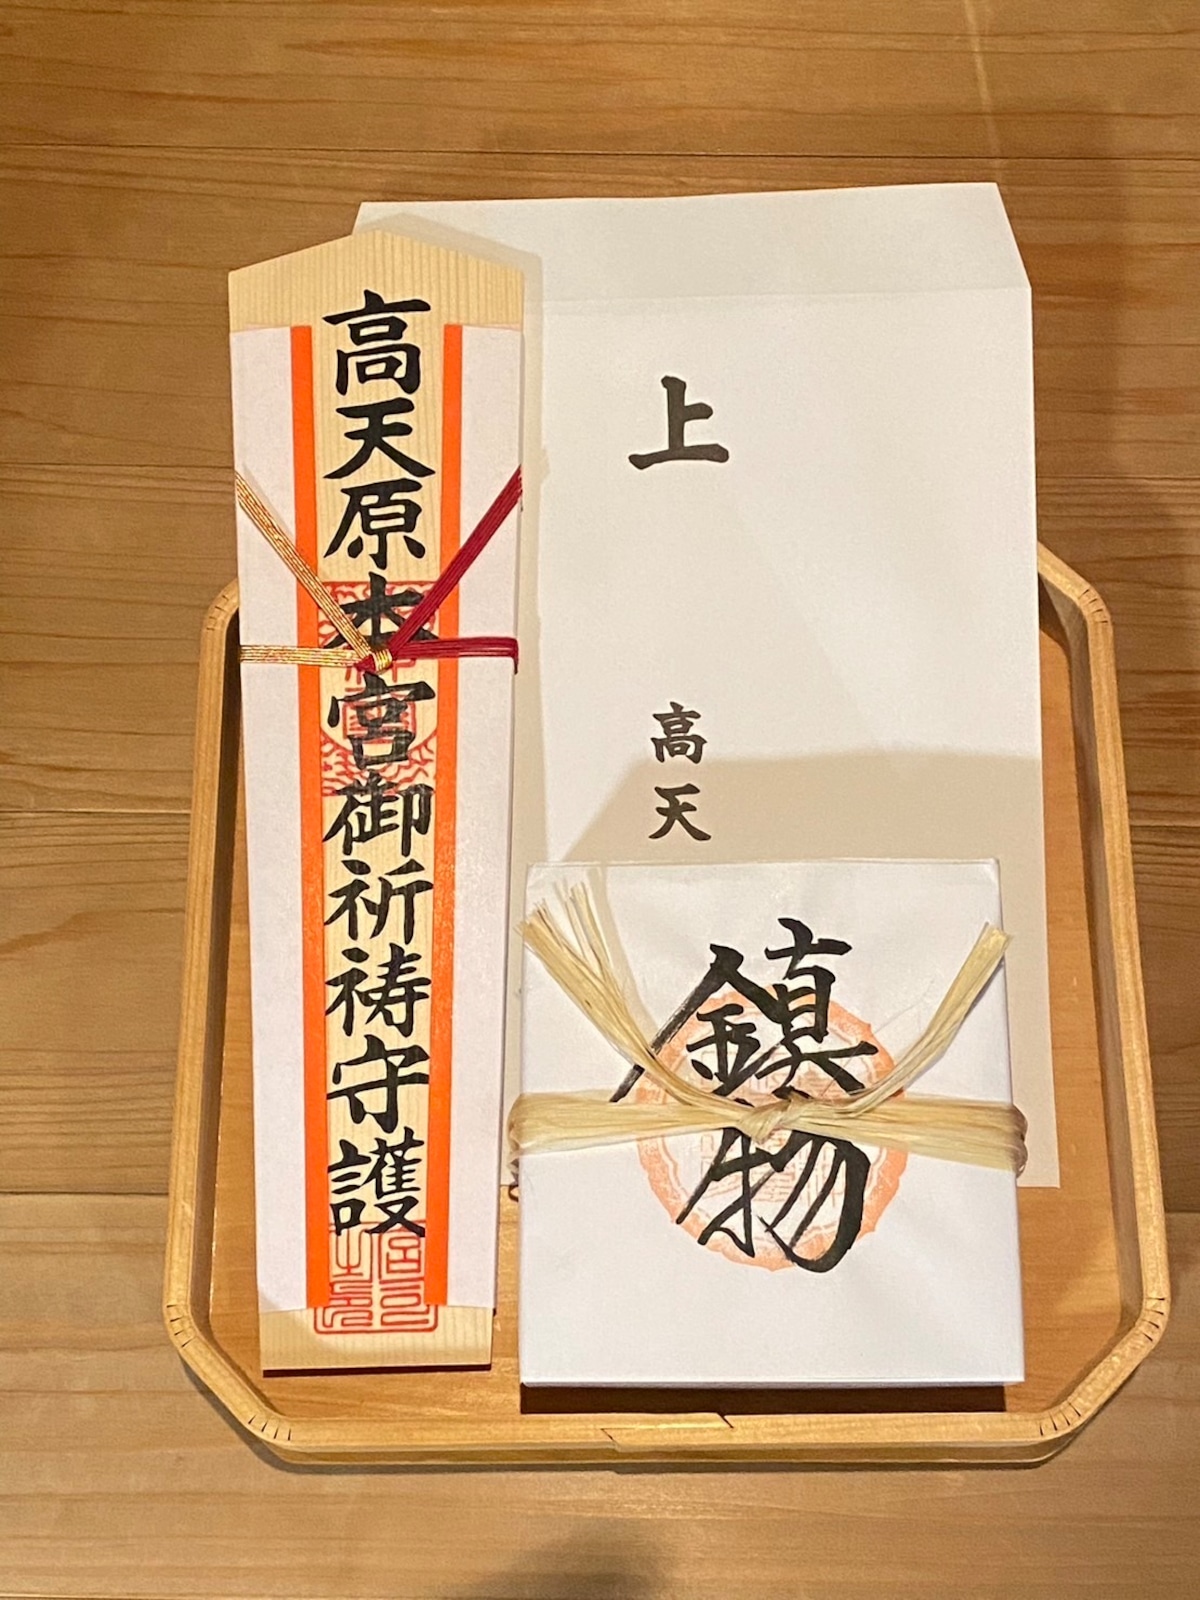 高天原本宮御祈祷守護
上
高天
鎮物